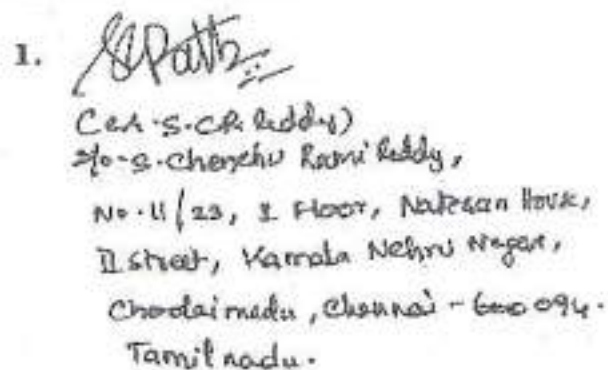 1.
S. Chenchu Rami Reddy,
No. 11/23, I Floor, Natesan House,
II Street, Kamala Nehru Nagar,
Choolaimedu, Chennai - 600 094.
Tamil nadu.